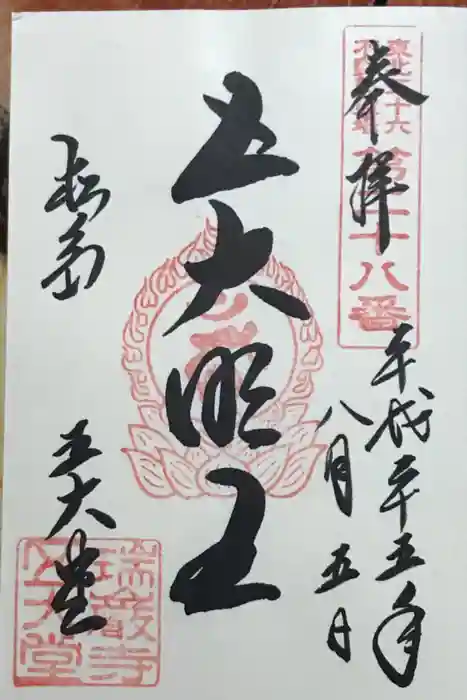 奉拝
東北三十六
不動尊霊場
第二十八番
平成二十五年
八月五日
五大明王
松島
五大堂
瑞巌寺
五大堂